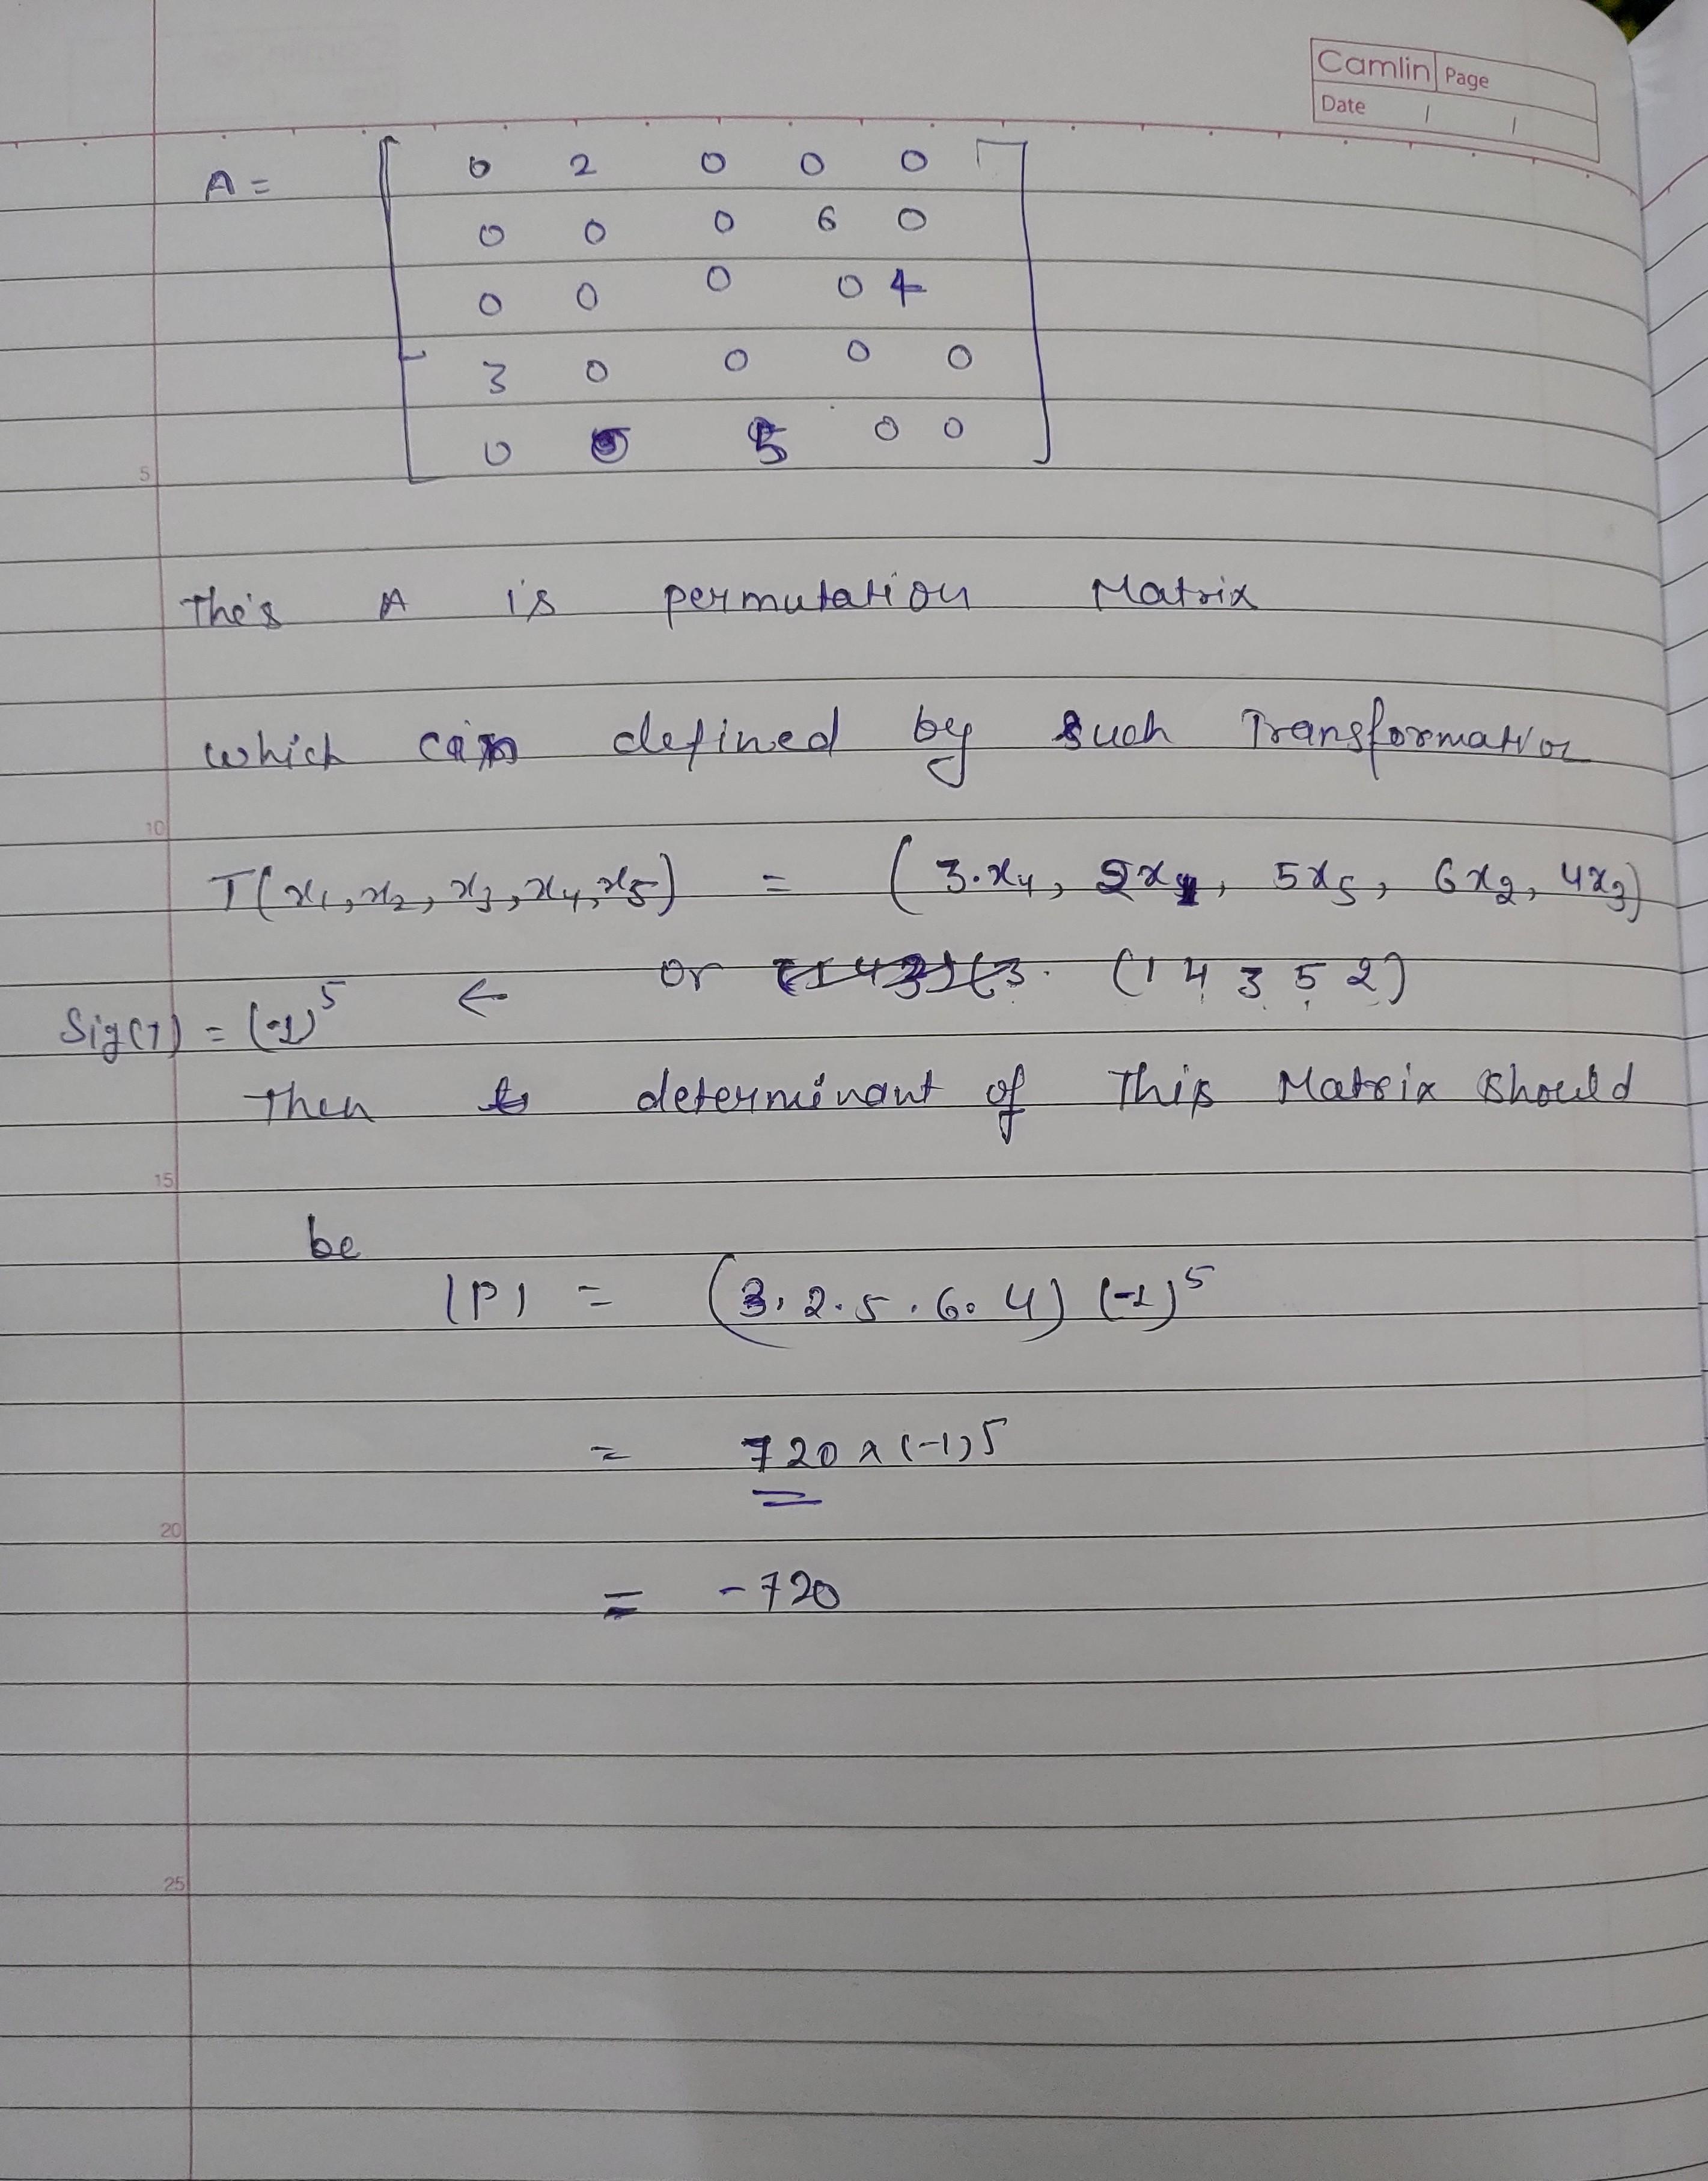 Camlin Page
Date / /
A = [ 0 2 0 0 0
0 0 0 6 0
0 0 0 0 4
3 0 0 0 0
0 0 5 0 0 ]
5
This A is permutation Matrix
which can defined by such Transformation
10
T(x1, x2, x3, x4, x5) = (3.x4, 2x1, 5x5, 6x2, 4x3)
or (1 4 3 5 2)
Sig(T) = (-1)^5 ←
Then determinant of This Matrix should
15
be
|P| = (3. 2. 5. 6. 4) (-1)^5
= 720 x (-1)^5
20
= -720
25